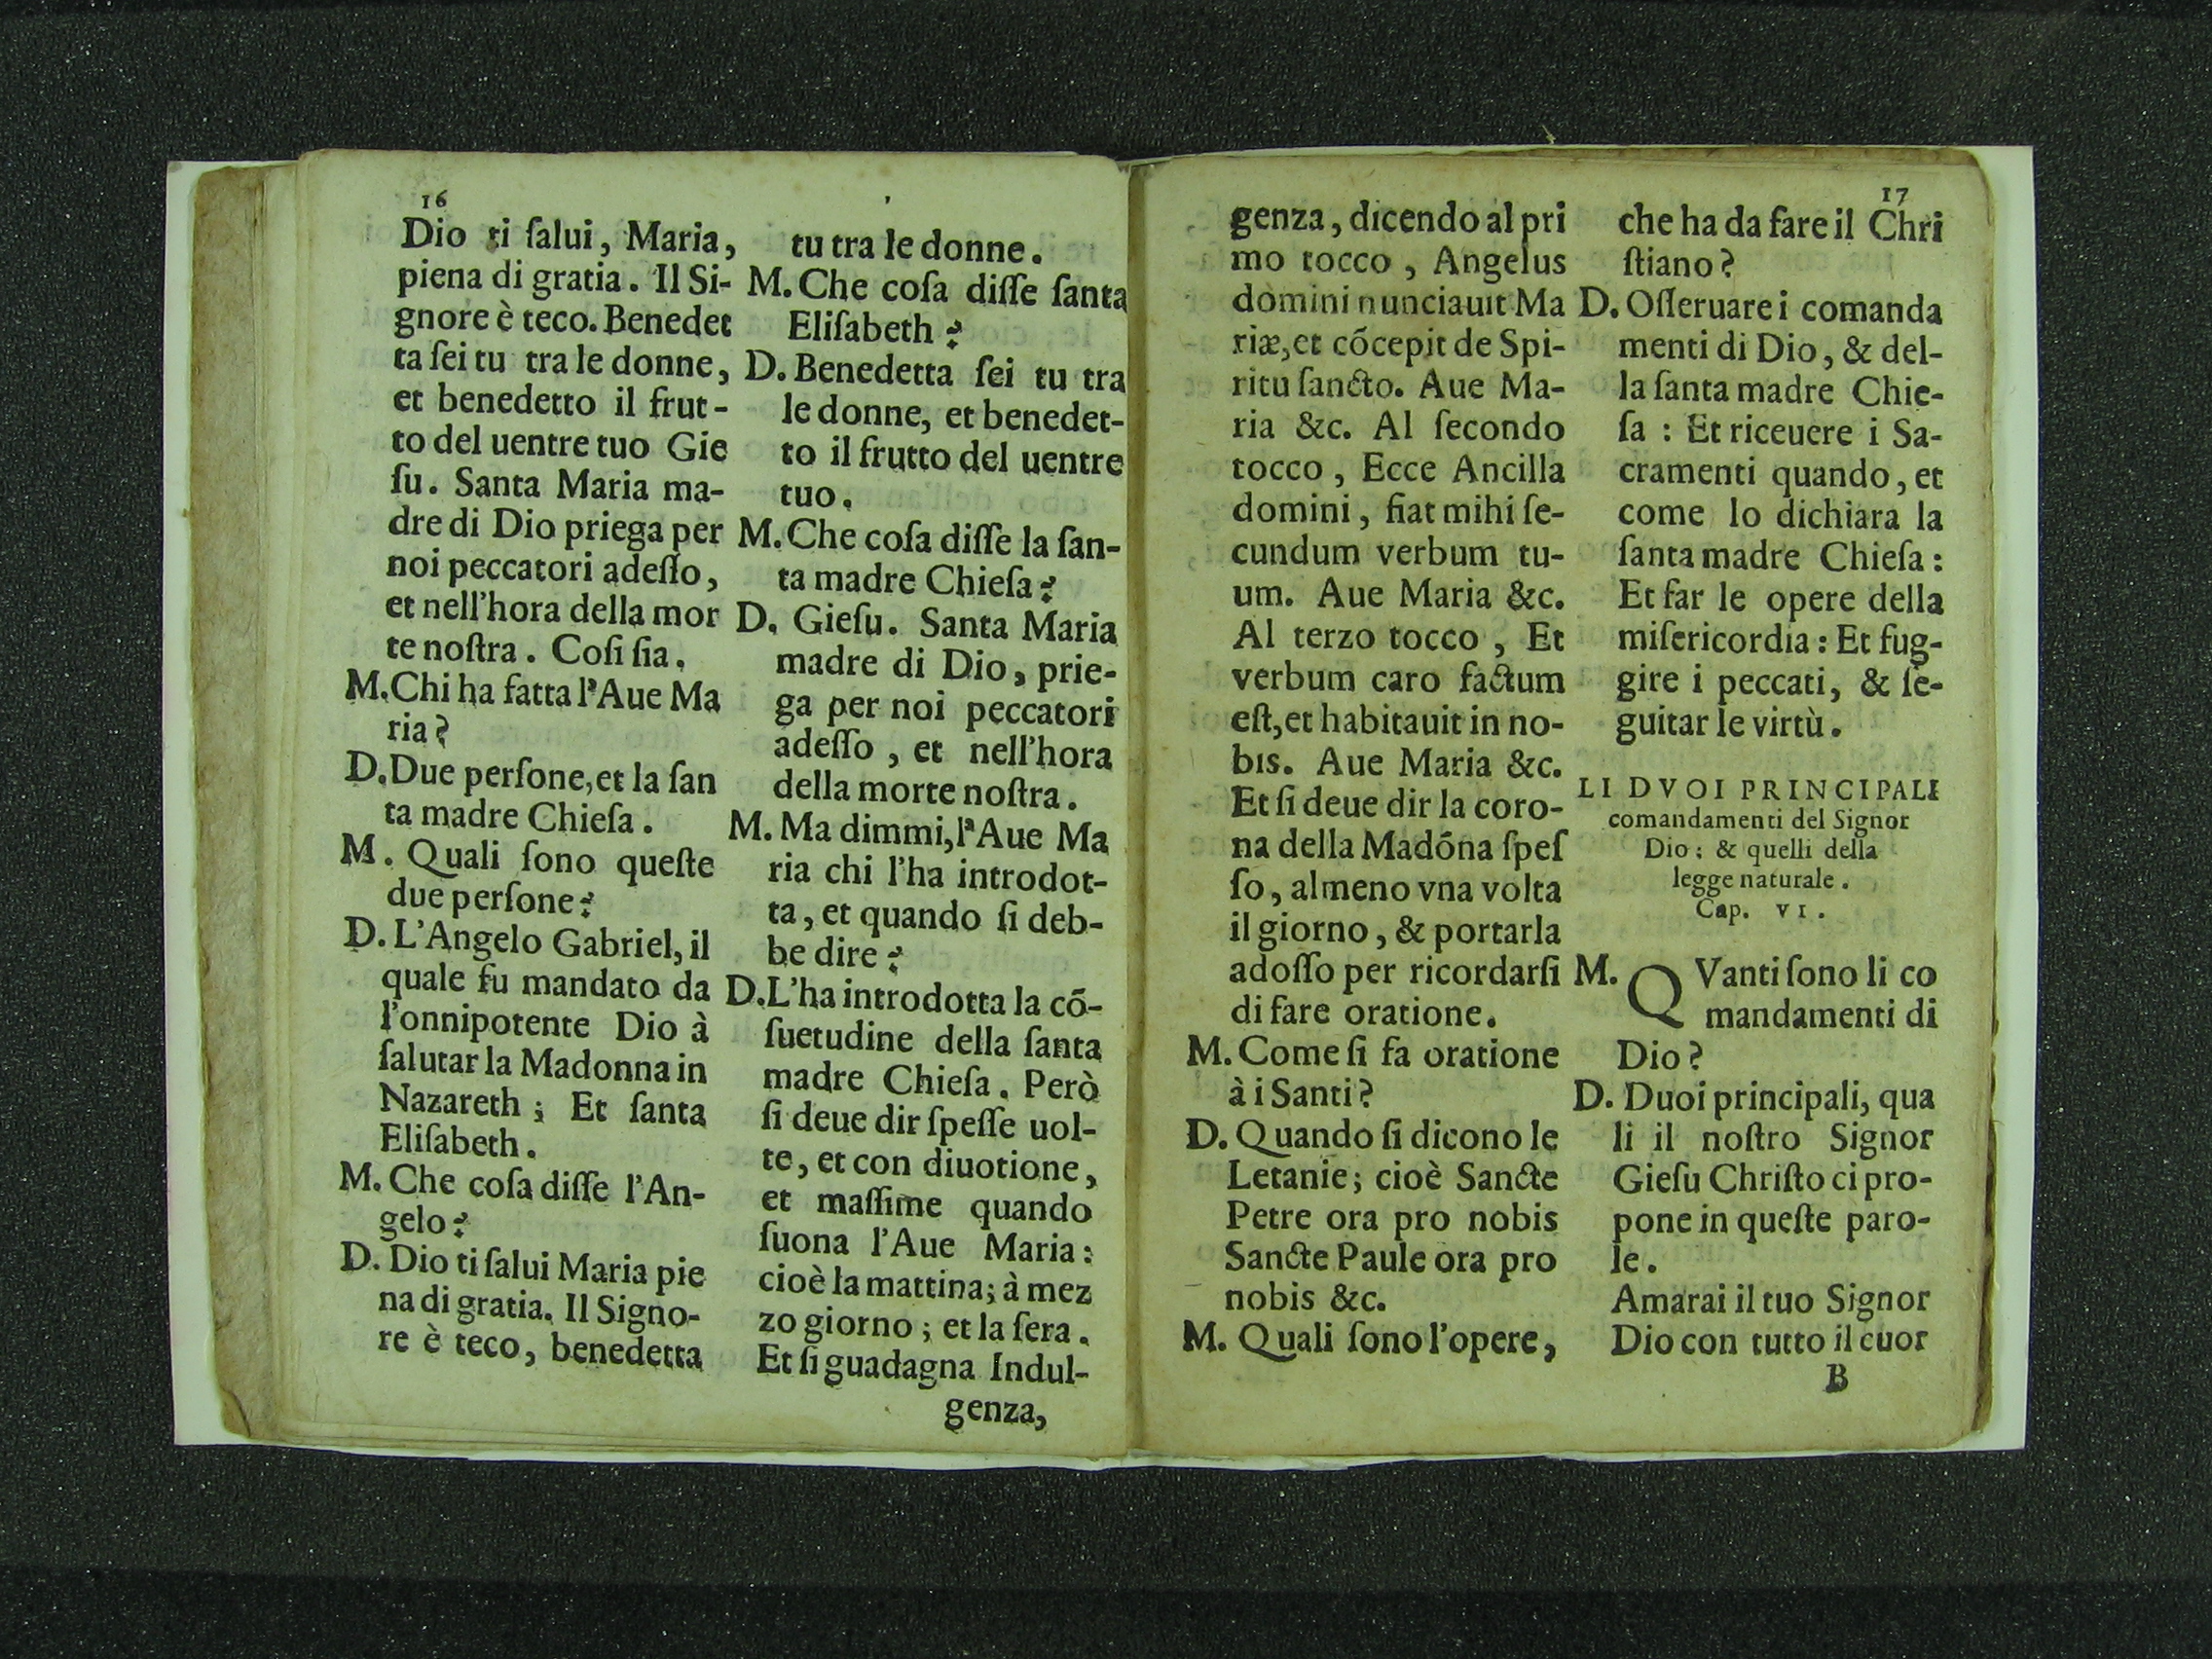 16
Dio ti ſalui, Maria,
piena di gratia. Il Si-
gnore è teco. Benedet
ta ſei tu tra le donne,
et benedetto il frut-
to del uentre tuo Gie
ſu. Santa Maria ma-
dre di Dio priega per
noi peccatori adeſſo,
et nell'hora della mor
te noſtra. Coſi ſia.
M. Chi ha fatta l'Aue Ma
ria?
D. Due perſone, et la ſan
ta madre Chieſa.
M. Quali ſono queſte
due perſone?
D. L'Angelo Gabriel, il
quale fu mandato da
l'onnipotente Dio à
ſalutar la Madonna in
Nazareth; Et ſanta
Eliſabeth.
M. Che coſa diſſe l'An-
gelo?
D. Dio ti ſalui Maria pie
na di gratia. Il Signo-
re è teco, benedetta
tu tra le donne.
M. Che coſa diſſe ſanta
Eliſabeth?
D. Benedetta ſei tu tra
le donne, et benedet-
to il frutto del uentre
tuo.
M. Che coſa diſſe la ſan-
ta madre Chieſa?
D. Gieſu. Santa Maria
madre di Dio, prie-
ga per noi peccatori
adeſſo, et nell'hora
della morte noſtra.
M. Ma dimmi, l'Aue Ma
ria chi l'ha introdot-
ta, et quando ſi deb-
be dire?
D. L'ha introdotta la cõ-
ſuetudine della ſanta
madre Chieſa. Però
ſi deue dir ſpeſſe uol-
te, et con diuotione,
et maſſime quando
ſuona l'Aue Maria:
cioè la mattina; à mez
zo giorno; et la ſera.
Et ſi guadagna Indul-
genza,
17
genza, dicendo al pri
mo tocco, Angelus
domini nunciauit Ma
riæ, et cõcepit de Spi-
ritu ſancto. Aue Ma-
ria &c. Al ſecondo
tocco, Ecce Ancilla
domini, fiat mihi ſe-
cundum verbum tu-
um. Aue Maria &c.
Al terzo tocco, Et
verbum caro factum
eſt, et habitauit in no-
bis. Aue Maria &c.
Et ſi deue dir la coro-
na della Madõna ſpeſ
ſo, almeno vna volta
il giorno, & portarla
adoſſo per ricordarſi
di fare oratione.
M. Come ſi fa oratione
à i Santi?
D. Quando ſi dicono le
Letanie; cioè Sancte
Petre ora pro nobis
Sancte Paule ora pro
nobis &c.
M. Quali ſono l'opere,
che ha da fare il Chri
ſtiano?
D. Oſſeruare i comanda
menti di Dio, & del-
la ſanta madre Chie-
ſa: Et riceuere i Sa-
cramenti quando, et
come lo dichiara la
ſanta madre Chieſa:
Et far le opere della
miſericordia: Et fug-
gire i peccati, & ſe-
guitar le virtù.
LI DVOI PRINCIPALI
comandamenti del Signor
Dio; & quelli della
legge naturale.
Cap. VI.
M. QVanti ſono li co
mandamenti di
Dio?
D. Duoi principali, qua
li il noſtro Signor
Gieſu Chriſto ci pro-
pone in queſte paro-
le.
Amarai il tuo Signor
Dio con tutto il cuor
B